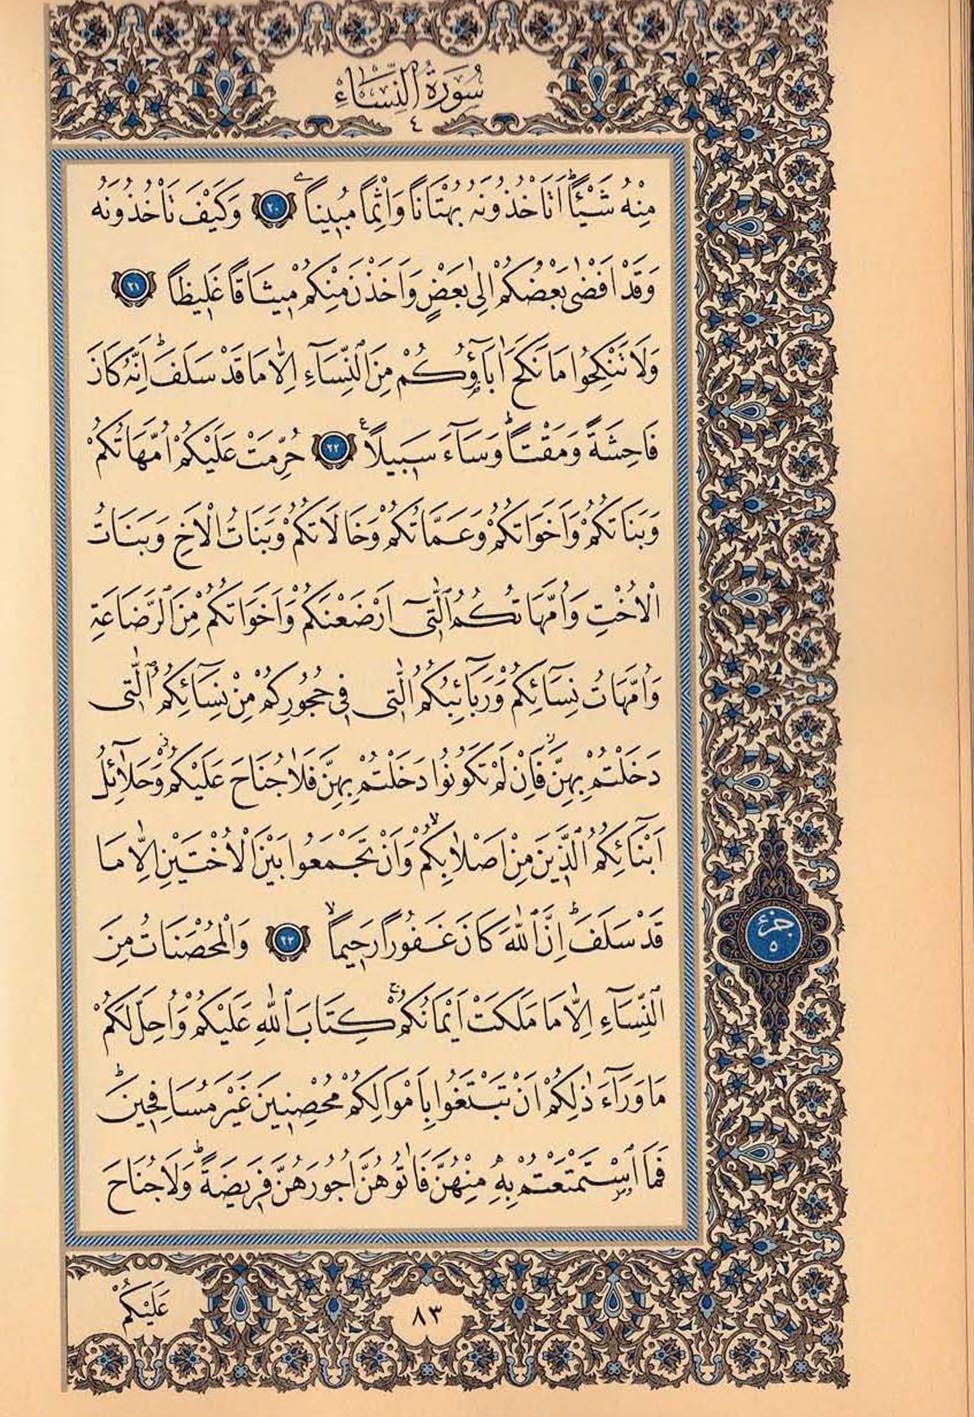 سُورَةُ النِّسَاءِ
٤
مِنْهُ شَيْـًٔاۜ اَتَأْخُذُونَهُ بُهْتَانًا وَاِثْمًا مُبِينًا ﴿٢٠﴾ وَكَيْفَ تَأْخُذُونَهُ
وَقَدْ اَفْضٰى بَعْضُكُمْ اِلٰى بَعْضٍ وَاَخَذْنَ مِنْكُمْ مِيثَاقًا غَلِيظًا ﴿٢١﴾
وَلَا تَنْكِحُوا مَا نَكَحَ اٰبَٓاؤُ۬كُمْ مِنَ النِّسَٓاءِ اِلَّا مَا قَدْ سَلَفَۜ اِنَّهُ كَانَ
فَاحِشَةً وَمَقْتًاۜ وَسَٓاءَ سَبِيلًا ﴿٢٢﴾ حُرِّمَتْ عَلَيْكُمْ اُمَّهَاتُكُمْ
وَبَنَاتُكُمْ وَاَخَوَاتُكُمْ وَعَمَّاتُكُمْ وَخَالَاتُكُمْ وَبَنَاتُ الْاَخِ وَبَنَاتُ
الْاُخْتِ وَاُمَّهَاتُكُمُ الّٰت۪ٓى اَرْضَعْنَكُمْ وَاَخَوَاتُكُمْ مِنَ الرَّضَاعَةِ
وَاُمَّهَاتُ نِسَٓائِكُمْ وَرَبَٓائِبُكُمُ الّٰت۪ى ف۪ى حُجُورِكُمْ مِنْ نِسَٓائِكُمُ الّٰت۪ى
دَخَلْتُمْ بِهِنَّۘ فَاِنْ لَمْ تَكُونُوا دَخَلْتُمْ بِهِنَّ فَلَا جُنَاحَ عَلَيْكُمْۘ وَحَلَٓائِلُ
اَبْنَٓائِكُمُ الَّذ۪ينَ مِنْ اَصْلَابِكُمْۙ وَاَنْ تَجْمَعُوا بَيْنَ الْاُخْتَيْنِ اِلَّا مَا
قَدْ سَلَفَۜ اِنَّ اللّٰهَ كَانَ غَفُورًا رَح۪يمًاۙ ﴿٢٣﴾ وَالْمُحْصَنَاتُ مِنَ
النِّسَٓاءِ اِلَّا مَا مَلَكَتْ اَيْمَانُكُمْۚ كِتَابَ اللّٰهِ عَلَيْكُمْ وَاُحِلَّ لَكُمْ
مَا وَرَٓاءَ ذٰلِكُمْ اَنْ تَبْتَغُوا بِاَمْوَالِكُمْ مُحْصِن۪ينَ غَيْرَ مُسَافِح۪ينَۜ
فَمَا اسْتَمْتَعْتُمْ بِه۪ مِنْهُنَّ فَاٰتُوهُنَّ اُجُورَهُنَّ فَر۪يضَةًۜ وَلَا جُنَاحَ
جزء
٥
٨٣
عَلَيْكُمْ